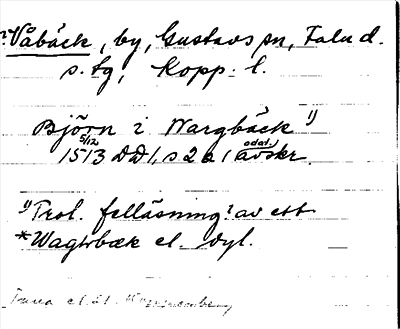 ?Våbäck, by, Gustavs sn, Falu d.
s. tg, Kopp. l.
Björn i Wargbäck 1)
5/12
1513 DD1, s 2 a (odat.) avskr.
1) Trol. felläsning? av ett
*Wagtrbæk el. dyl.